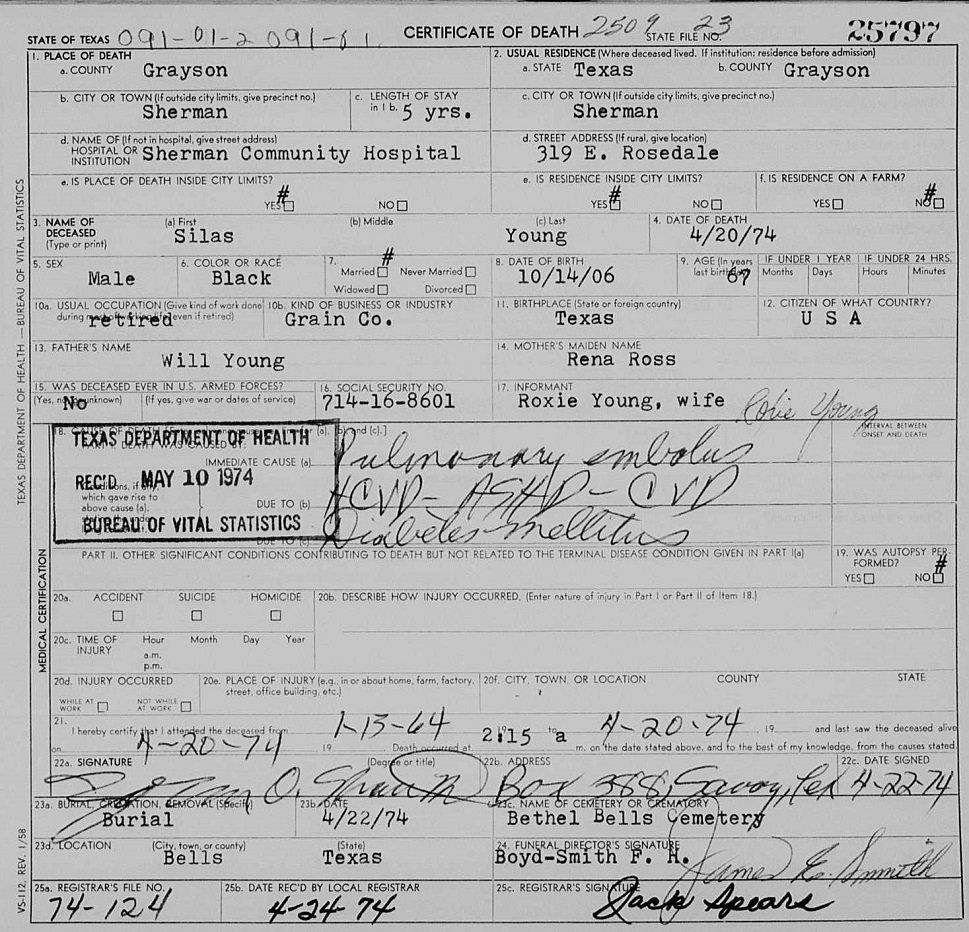 STATE OF TEXAS 091-01-2 091-61. CERTIFICATE OF DEATH 2509 STATE FILE NO. 23 25797
1. PLACE OF DEATH
a. COUNTY Grayson
2. USUAL RESIDENCE (Where deceased lived. If institution: residence before admission)
a. STATE Texas b. COUNTY Grayson
b. CITY OR TOWN (If outside city limits, give precinct no.)
Sherman
c. LENGTH OF STAY in 1 b. 5 yrs.
c. CITY OR TOWN (If outside city limits, give precinct no.)
Sherman
d. NAME OF (If not in hospital, give street address)
HOSPITAL OR INSTITUTION Sherman Community Hospital
d. STREET ADDRESS (If rural, give location)
319 E. Rosedale
e. IS PLACE OF DEATH INSIDE CITY LIMITS?
YES # NO
e. IS RESIDENCE INSIDE CITY LIMITS?
YES # NO
f. IS RESIDENCE ON A FARM?
YES NO #
3. NAME OF DECEASED (Type or print)
(a) First (b) Middle (c) Last
Silas Young
4. DATE OF DEATH
4/20/74
5. SEX
Male
6. COLOR OR RACE
Black
7. #
Married Never Married
Widowed Divorced
8. DATE OF BIRTH
10/14/06
9. AGE (In years last birthday) 67
IF UNDER 1 YEAR IF UNDER 24 HRS.
Months Days Hours Minutes
10a. USUAL OCCUPATION (Give kind of work done during most of working life, even if retired)
retired
10b. KIND OF BUSINESS OR INDUSTRY
Grain Co.
11. BIRTHPLACE (State or foreign country)
Texas
12. CITIZEN OF WHAT COUNTRY?
U S A
13. FATHER'S NAME
Will Young
14. MOTHER'S MAIDEN NAME
Rena Ross
15. WAS DECEASED EVER IN U.S. ARMED FORCES?
(Yes, no, or unknown) (If yes, give war or dates of service)
No
16. SOCIAL SECURITY NO.
714-16-8601
17. INFORMANT
Roxie Young, wife Young
INTERVAL BETWEEN ONSET AND DEATH
TEXAS DEPARTMENT OF HEALTH
REC'D MAY 10 1974
BUREAU OF VITAL STATISTICS
IMMEDIATE CAUSE (a) Pulmonary embolus
which gave rise to above cause (a),
DUE TO (b) HCVD - ASHD - CVD
DUE TO (c) Diabetes mellitus
PART II. OTHER SIGNIFICANT CONDITIONS CONTRIBUTING TO DEATH BUT NOT RELATED TO THE TERMINAL DISEASE CONDITION GIVEN IN PART I(a)
19. WAS AUTOPSY PERFORMED?
YES NO #
20a. ACCIDENT SUICIDE HOMICIDE
20b. DESCRIBE HOW INJURY OCCURRED. (Enter nature of injury in Part I or Part II of Item 18.)
20c. TIME OF INJURY Hour Month Day Year
a.m.
p.m.
20d. INJURY OCCURRED
WHILE AT WORK NOT WHILE AT WORK
20e. PLACE OF INJURY (e.g., in or about home, farm, factory, street, office building, etc.)
20f. CITY, TOWN, OR LOCATION COUNTY STATE
21.
I hereby certify that I attended the deceased from 1-13-64 19 to 4-20-74, 19 and last saw the deceased alive
on 4-20-74 19 Death occurred at 2:15 a m. on the date stated above, and to the best of my knowledge, from the causes stated.
22a. SIGNATURE (Degree or title)
22b. ADDRESS
Box 388, Savoy, Tex
22c. DATE SIGNED
4-22-74
23a. BURIAL, CREMATION, REMOVAL (Specify)
Burial
23b. DATE
4/22/74
23c. NAME OF CEMETERY OR CREMATORY
Bethel Bells Cemetery
23d. LOCATION (City, town, or county) (State)
Bells Texas
24. FUNERAL DIRECTOR'S SIGNATURE
Boyd-Smith F. H. James E. Smmith
25a. REGISTRAR'S FILE NO.
74-124
25b. DATE REC'D BY LOCAL REGISTRAR
4-24-74
25c. REGISTRAR'S SIGNATURE
Jack Spears
TEXAS DEPARTMENT OF HEALTH — BUREAU OF VITAL STATISTICS
MEDICAL CERTIFICATION
VS-112, REV. 1/58